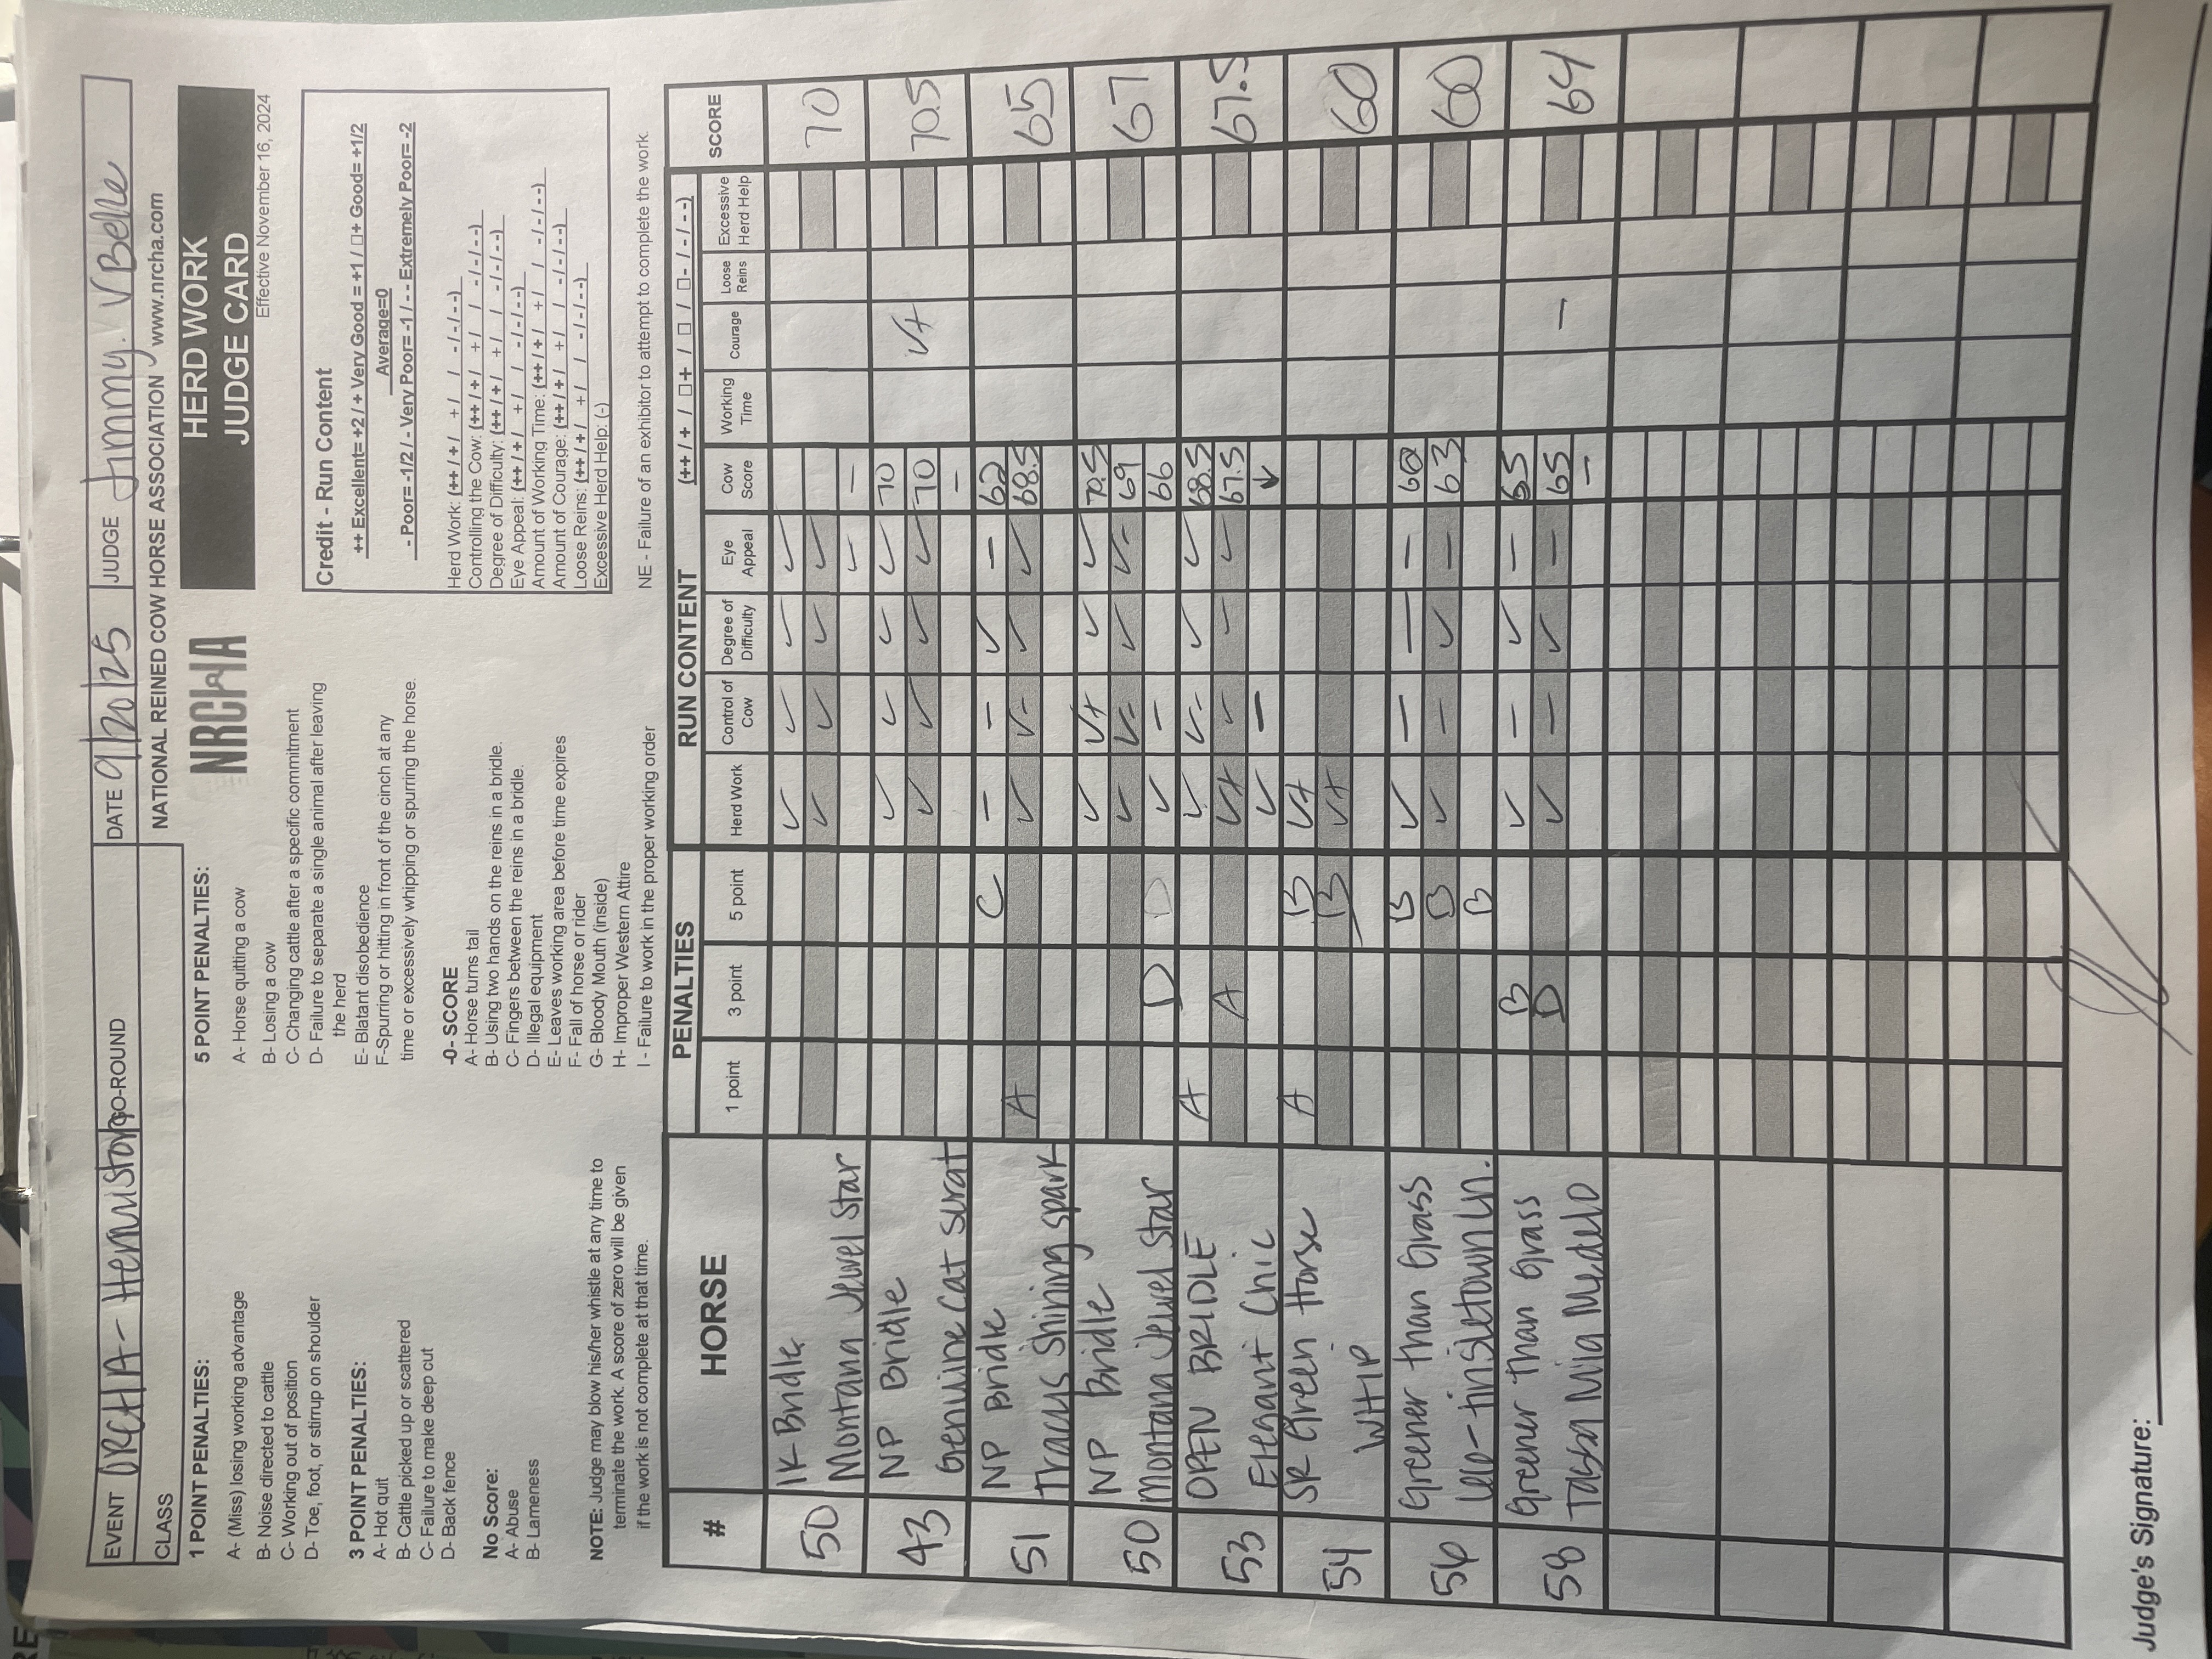 EVENT ORCHA - Hermiston GO-ROUND DATE 9/20/25 JUDGE Jimmy. V Belle
CLASS
NATIONAL REINED COW HORSE ASSOCIATION www.nrcha.com
NRCHA
HERD WORK
JUDGE CARD
Effective November 16, 2024
1 POINT PENALTIES:
A- (Miss) losing working advantage
B- Noise directed to cattle
C- Working out of position
D- Toe, foot, or stirrup on shoulder
3 POINT PENALTIES:
A- Hot quit
B- Cattle picked up or scattered
C- Failure to make deep cut
D- Back fence
No Score:
A- Abuse
B- Lameness
NOTE: Judge may blow his/her whistle at any time to
terminate the work. A score of zero will be given
if the work is not complete at that time.
5 POINT PENALTIES:
A- Horse quitting a cow
B- Losing a cow
C- Changing cattle after a specific commitment
D- Failure to separate a single animal after leaving
the herd
E- Blatant disobedience
F-Spurring or hitting in front of the cinch at any
time or excessively whipping or spurring the horse.
-0- SCORE
A- Horse turns tail
B- Using two hands on the reins in a bridle.
C- Fingers between the reins in a bridle.
D- Illegal equipment
E- Leaves working area before time expires
F- Fall of horse or rider
G- Bloody Mouth (inside)
H- Improper Western Attire
I - Failure to work in the proper working order
Credit - Run Content
++ Excellent= +2 / + Very Good = +1 / □+ Good= +1/2
Average=0
- Poor= -1/2 / - Very Poor= -1 / - - Extremely Poor= -2
Herd Work: (++ / + / +/ / - / - / - -)
Controlling the Cow: (++ / + / +/ / - / - / - -)
Degree of Difficulty: (++ / + / +/ / - / - / - -)
Eye Appeal: (++ / + / +/ / - / - / - -)
Amount of Working Time: (++ / + / +/ / - / - / - -)
Amount of Courage: (++ / + / +/ / - / - / - -)
Loose Reins: (++ / + / +/ / - / - / - -)
Excessive Herd Help: (-)
NE - Failure of an exhibitor to attempt to complete the work.
# HORSE PENALTIES RUN CONTENT (++ / + / □+ / □ / □- / - / - -) SCORE
1 point 3 point 5 point Herd Work Control of Cow Degree of Difficulty Eye Appeal Cow Score Working Time Courage Loose Reins Excessive Herd Help
1K Bridle ✓ ✓ ✓ ✓
50 Montana Jewel Star ✓ ✓ ✓ ✓ 70
– –
NP Bridle ✓ ✓ ✓ ✓ 70 ✓+
43 Genuine Cat Surat ✓ ✓ ✓ ✓ 70 70.5
–
NP Bridle C – – ✓ – 62
51 Tracys Shining Spark A ✓ ✓- ✓ ✓ 68.5 65
NP Bridle ✓ ✓+ ✓ ✓ 70.5
50 Montana Jewel Star ✓ ✓- ✓ ✓- 69 67
D D ✓ – 66
OPEN BRIDLE A ✓ ✓- ✓ ✓ 68.5
53 Elegant Chic A ✓+ ✓ – ✓ 67.5 67.5
✓ – ↓
SR Green Horse A B ✓+
54 WHIP B ✓+ 60
Greener than Grass B ✓ – – – 60
56 Leo-tinseltown Ln. B ✓ – ✓ – 63 60
B
Greener than Grass B ✓ – ✓ – 65
58 D ✓ – ✓ – 65 – 64
–
Judge's Signature: